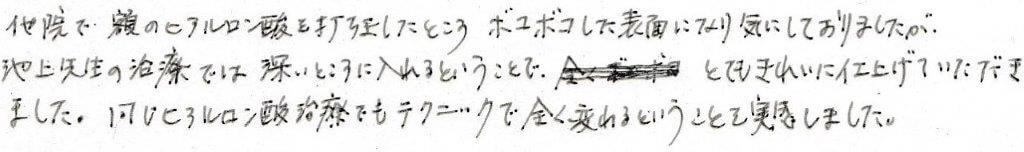 他院で額のヒアルロン酸を打ち注したところ ボコボコした表面になり気にしておりましたが、
池上先生の治療では深いところに入れるということで、とてもきれいに仕上げていただき
ました。同じヒアルロン酸治療でもテクニックで全く変わるということを実感しました。